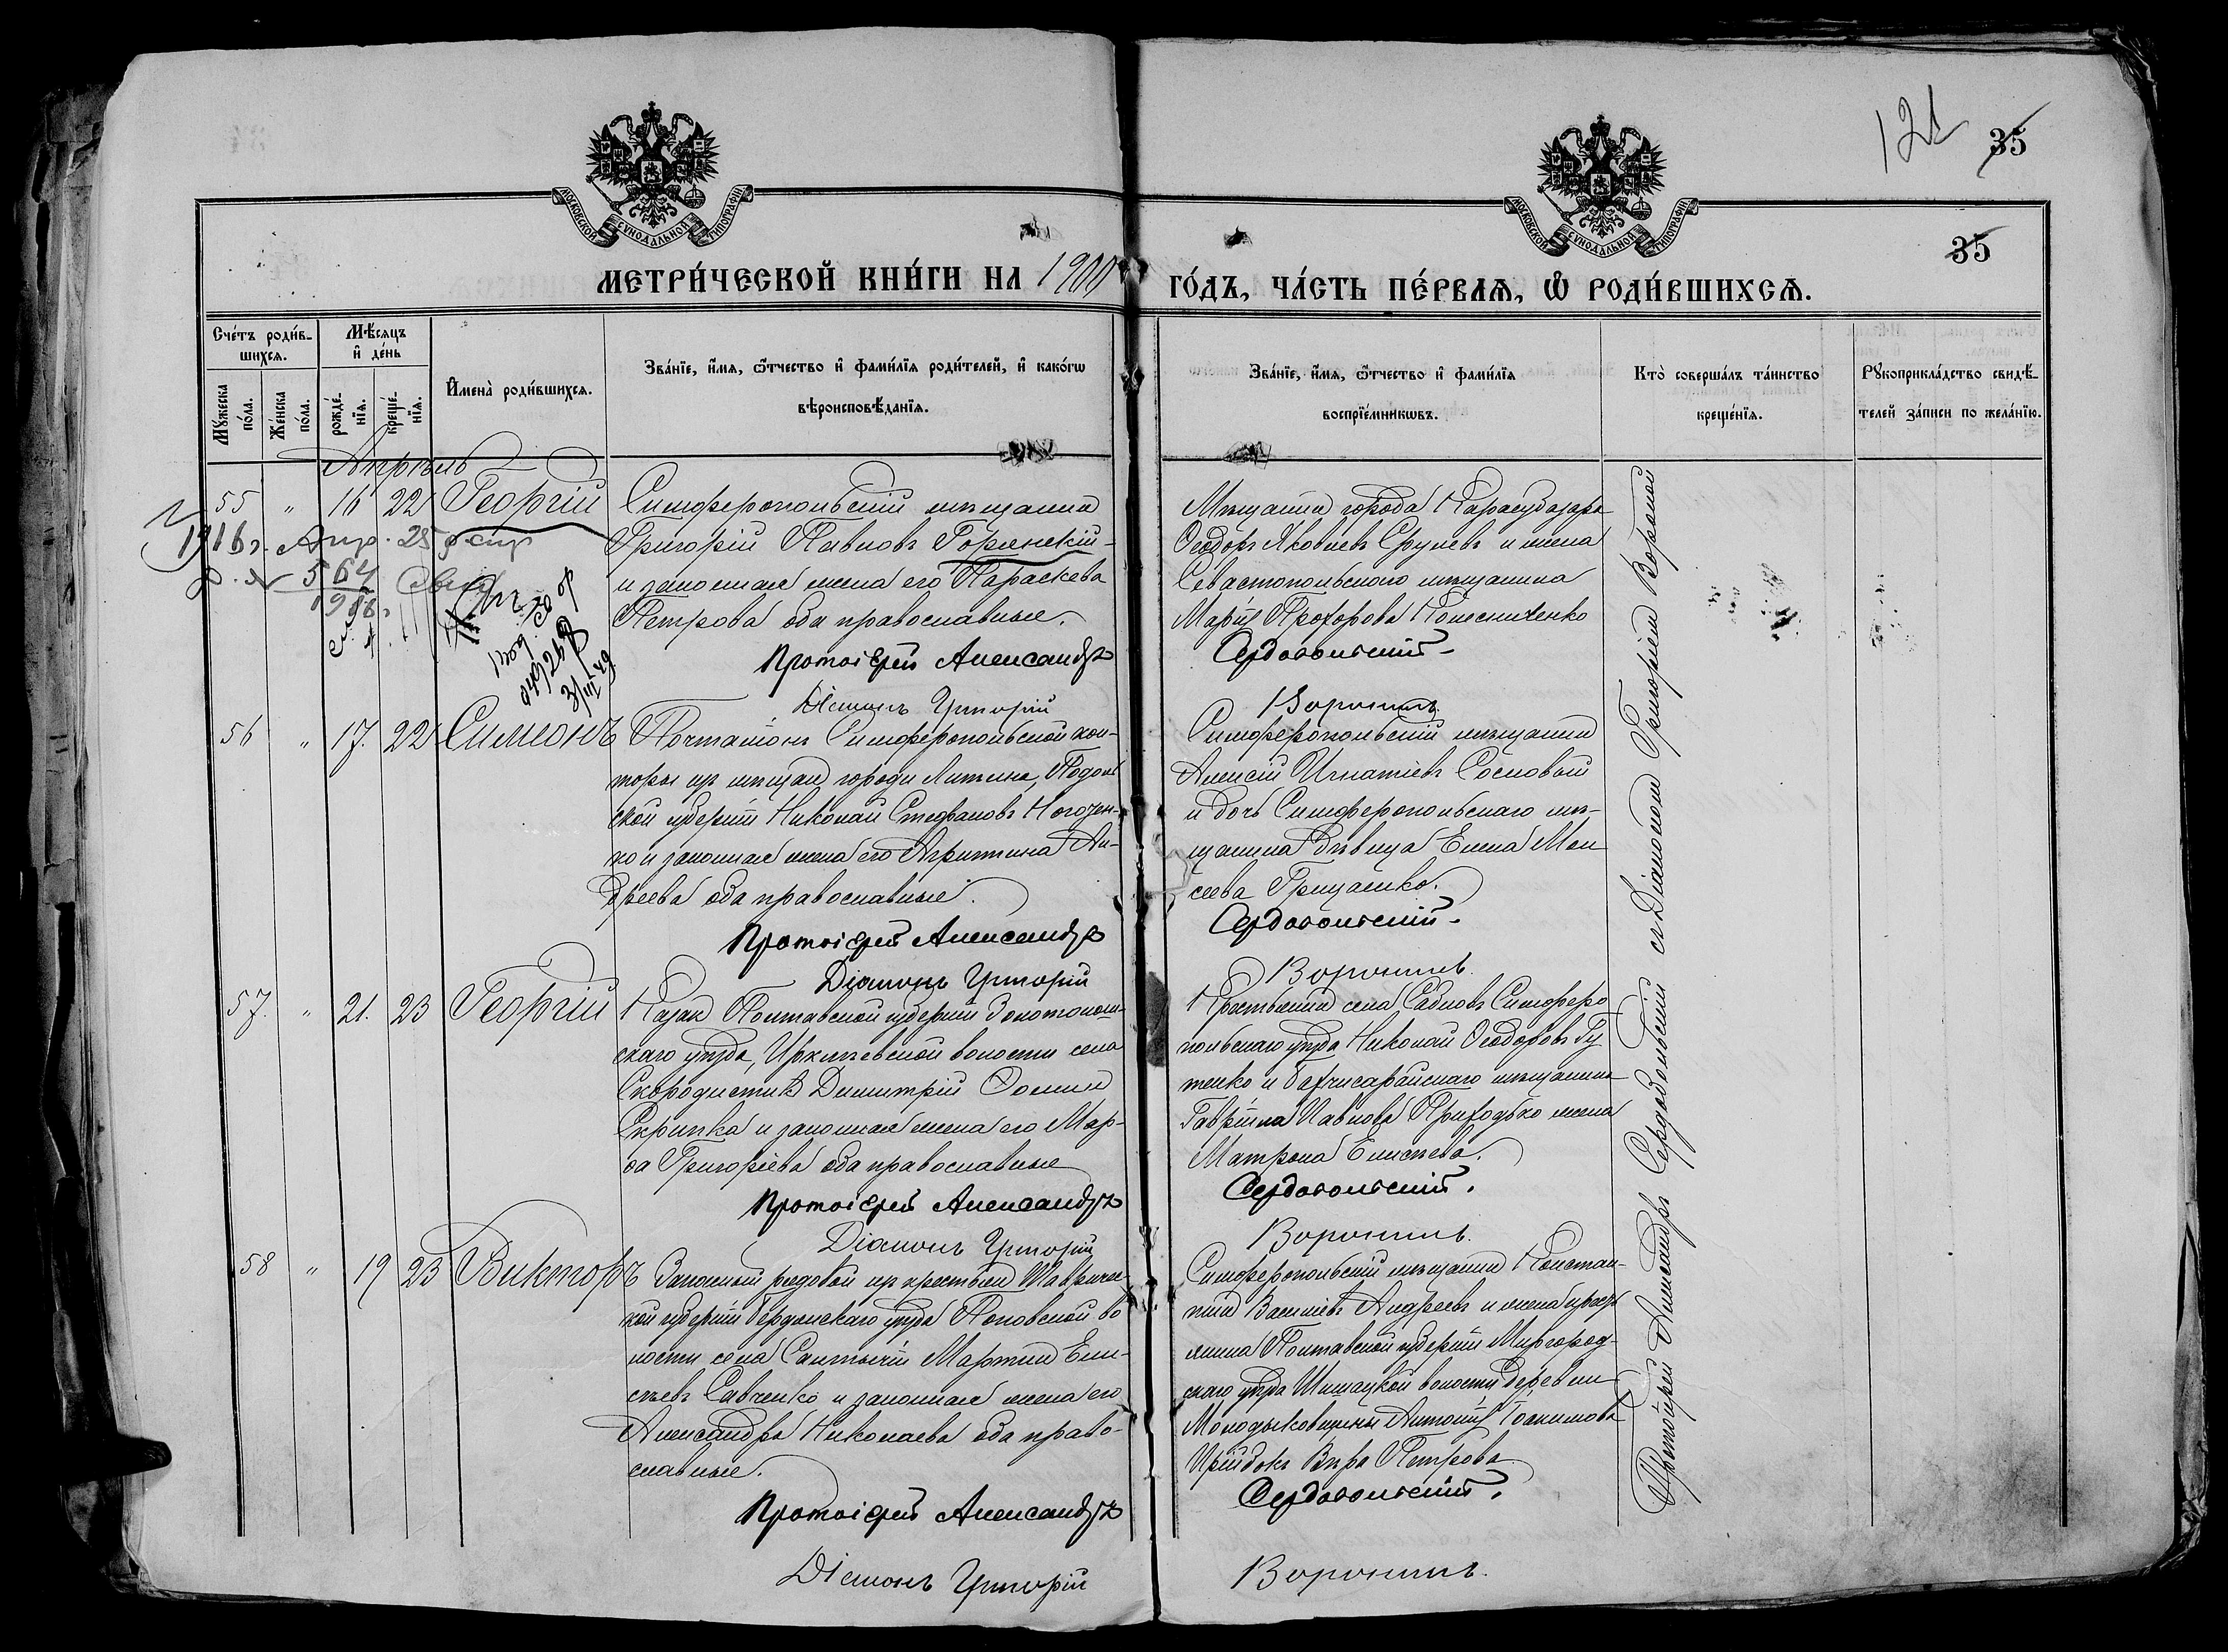 121 35
35
МОСКОВСКОЙ СУНОДАЛЬНОЙ ТИПОГРАФІИ
МОСКОВСКОЙ СУНОДАЛЬНОЙ ТИПОГРАФІИ
МЕТРИ́ЧЕСКОЙ КНИ́ГИ НА 1900 ГО́ДЪ, ЧА́СТЬ ПЕ́РВАѦ, Ѡ РОДИ́ВШИХСѦ.
Сче́тъ роди́в-
шихсѧ.
Мꙋ́жеска
по́ла.
Же́нска
по́ла.
Мѣ́сѧцъ
и де́нь
рожде́-
нїѧ.
креще́-
нїѧ.
Имена̀ роди́вшихсѧ.
Зва́нїе, и́мѧ, ѻ́тчество и фами́лїѧ роди́телей, и како́гѡ
вѣроисповѣ́данїѧ.
Зва́нїе, и́мѧ, ѻ́тчество и фами́лїѧ
воспрїе́мникѡвъ.
Кто̀ соверша́лъ та́инство
креще́нїѧ.
Рꙋкоприкла́дство свидѣ́-
телей за́писи по жела́нїю.
Апрѣль
55 " 16 22 Георгій
Симферопольскій мѣщанинъ
Григорій Павловъ Горянскій
и законная жена его Параскева
Петрова оба православные.
Протоіерей Александръ
Діаконъ Григорій
Мѣщанинъ города Карасубазара
Ѳеодоръ Яковлевъ и жена
Севастопольскаго мѣщанина
Марія Прохорова Колесниченко
Сердобольскій.
Воронинъ.
1916 г. Апр. 25
564
1916
56 " 17. 22 Симеонъ
Почталіонъ Симферопольской кон-
торы изъ мѣщанъ города Литина, Подоль
ской губерніи Николай Стефановъ
и законная жена его Агриппина Ан-
дреева оба православные.
Протоіерей Александръ
Діаконъ Григорій
Симферопольскій мѣщанинъ
Алексій Игнатіевъ Сосновый
и дочь Симферопольскаго мѣ-
щанина дѣвица Елена Мои
сеева Грищенко.
Сердобольскій.
Воронинъ.
57. " 21. 23 Георгій
Казакъ Полтавской губерніи Золотонош-
скаго уѣзда, Ирклѣевской волости села
Скородистикъ Димитрій Ѳоминъ
Скрипка и законная жена его Мар-
ѳа Григоріева оба православные
Протоіерей Александръ
Діаконъ Григорій
Крестьянинъ села Сабловъ Симферо
польскаго уѣзда Николай Ѳеодоровъ Гу
тенко и Бахчисарайскаго мѣщанина
Гавріила Павлова Приходько жена
Матрона Елисѣева.
Сердобольскій.
Воронинъ.
58 " 19 23 Викторъ
Запасный рядовой изъ крестьянъ Тавричес-
кой губерніи Бердянскаго уѣзда Поповской во
лости села Мартинъ Ели-
сѣевъ Савченко и законная жена его
Александра Николаева оба право-
славные.
Протоіерей Александръ
Діаконъ Григорій
Симферопольскій мѣщанинъ Констан-
тинъ Василіевъ Андреевъ и жена крестья
янина Полтавской губерніи Миргород-
скаго уѣзда Шишацкой волости деревни
Молодыковщины Антонія Іоакимова
Вѣра Петрова
Сердобольскій.
Воронинъ.
Протоіерей Александръ Сердобольскій съ Діакономъ Григоріемъ Ворониной